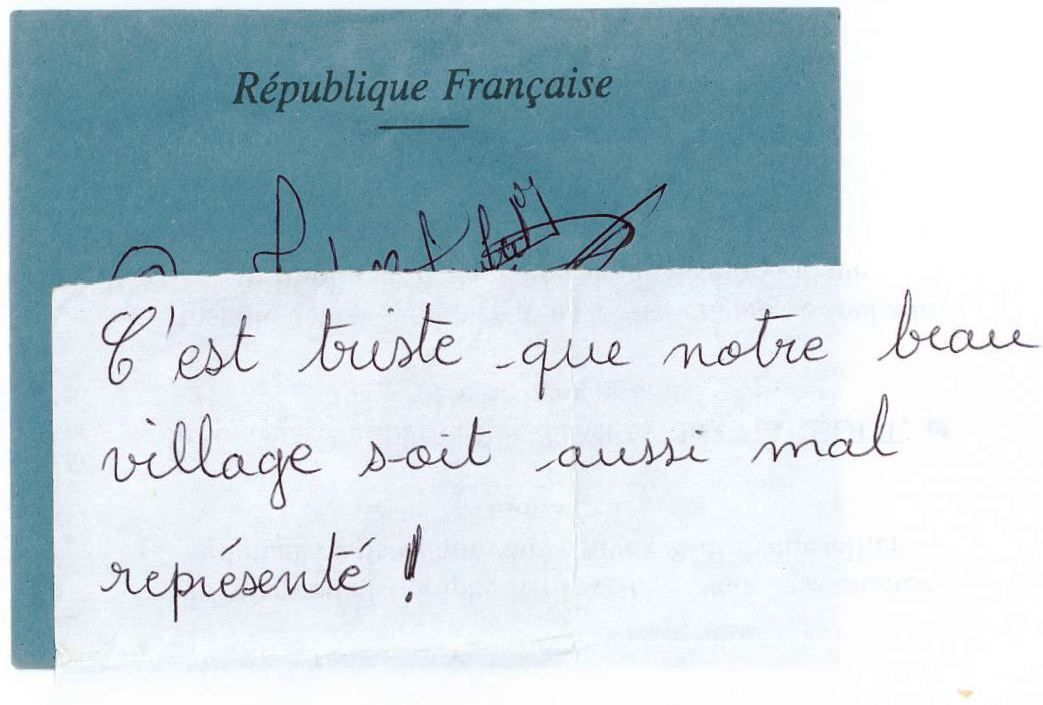 République Française
C'est triste que notre beau
village soit aussi mal
représenté !